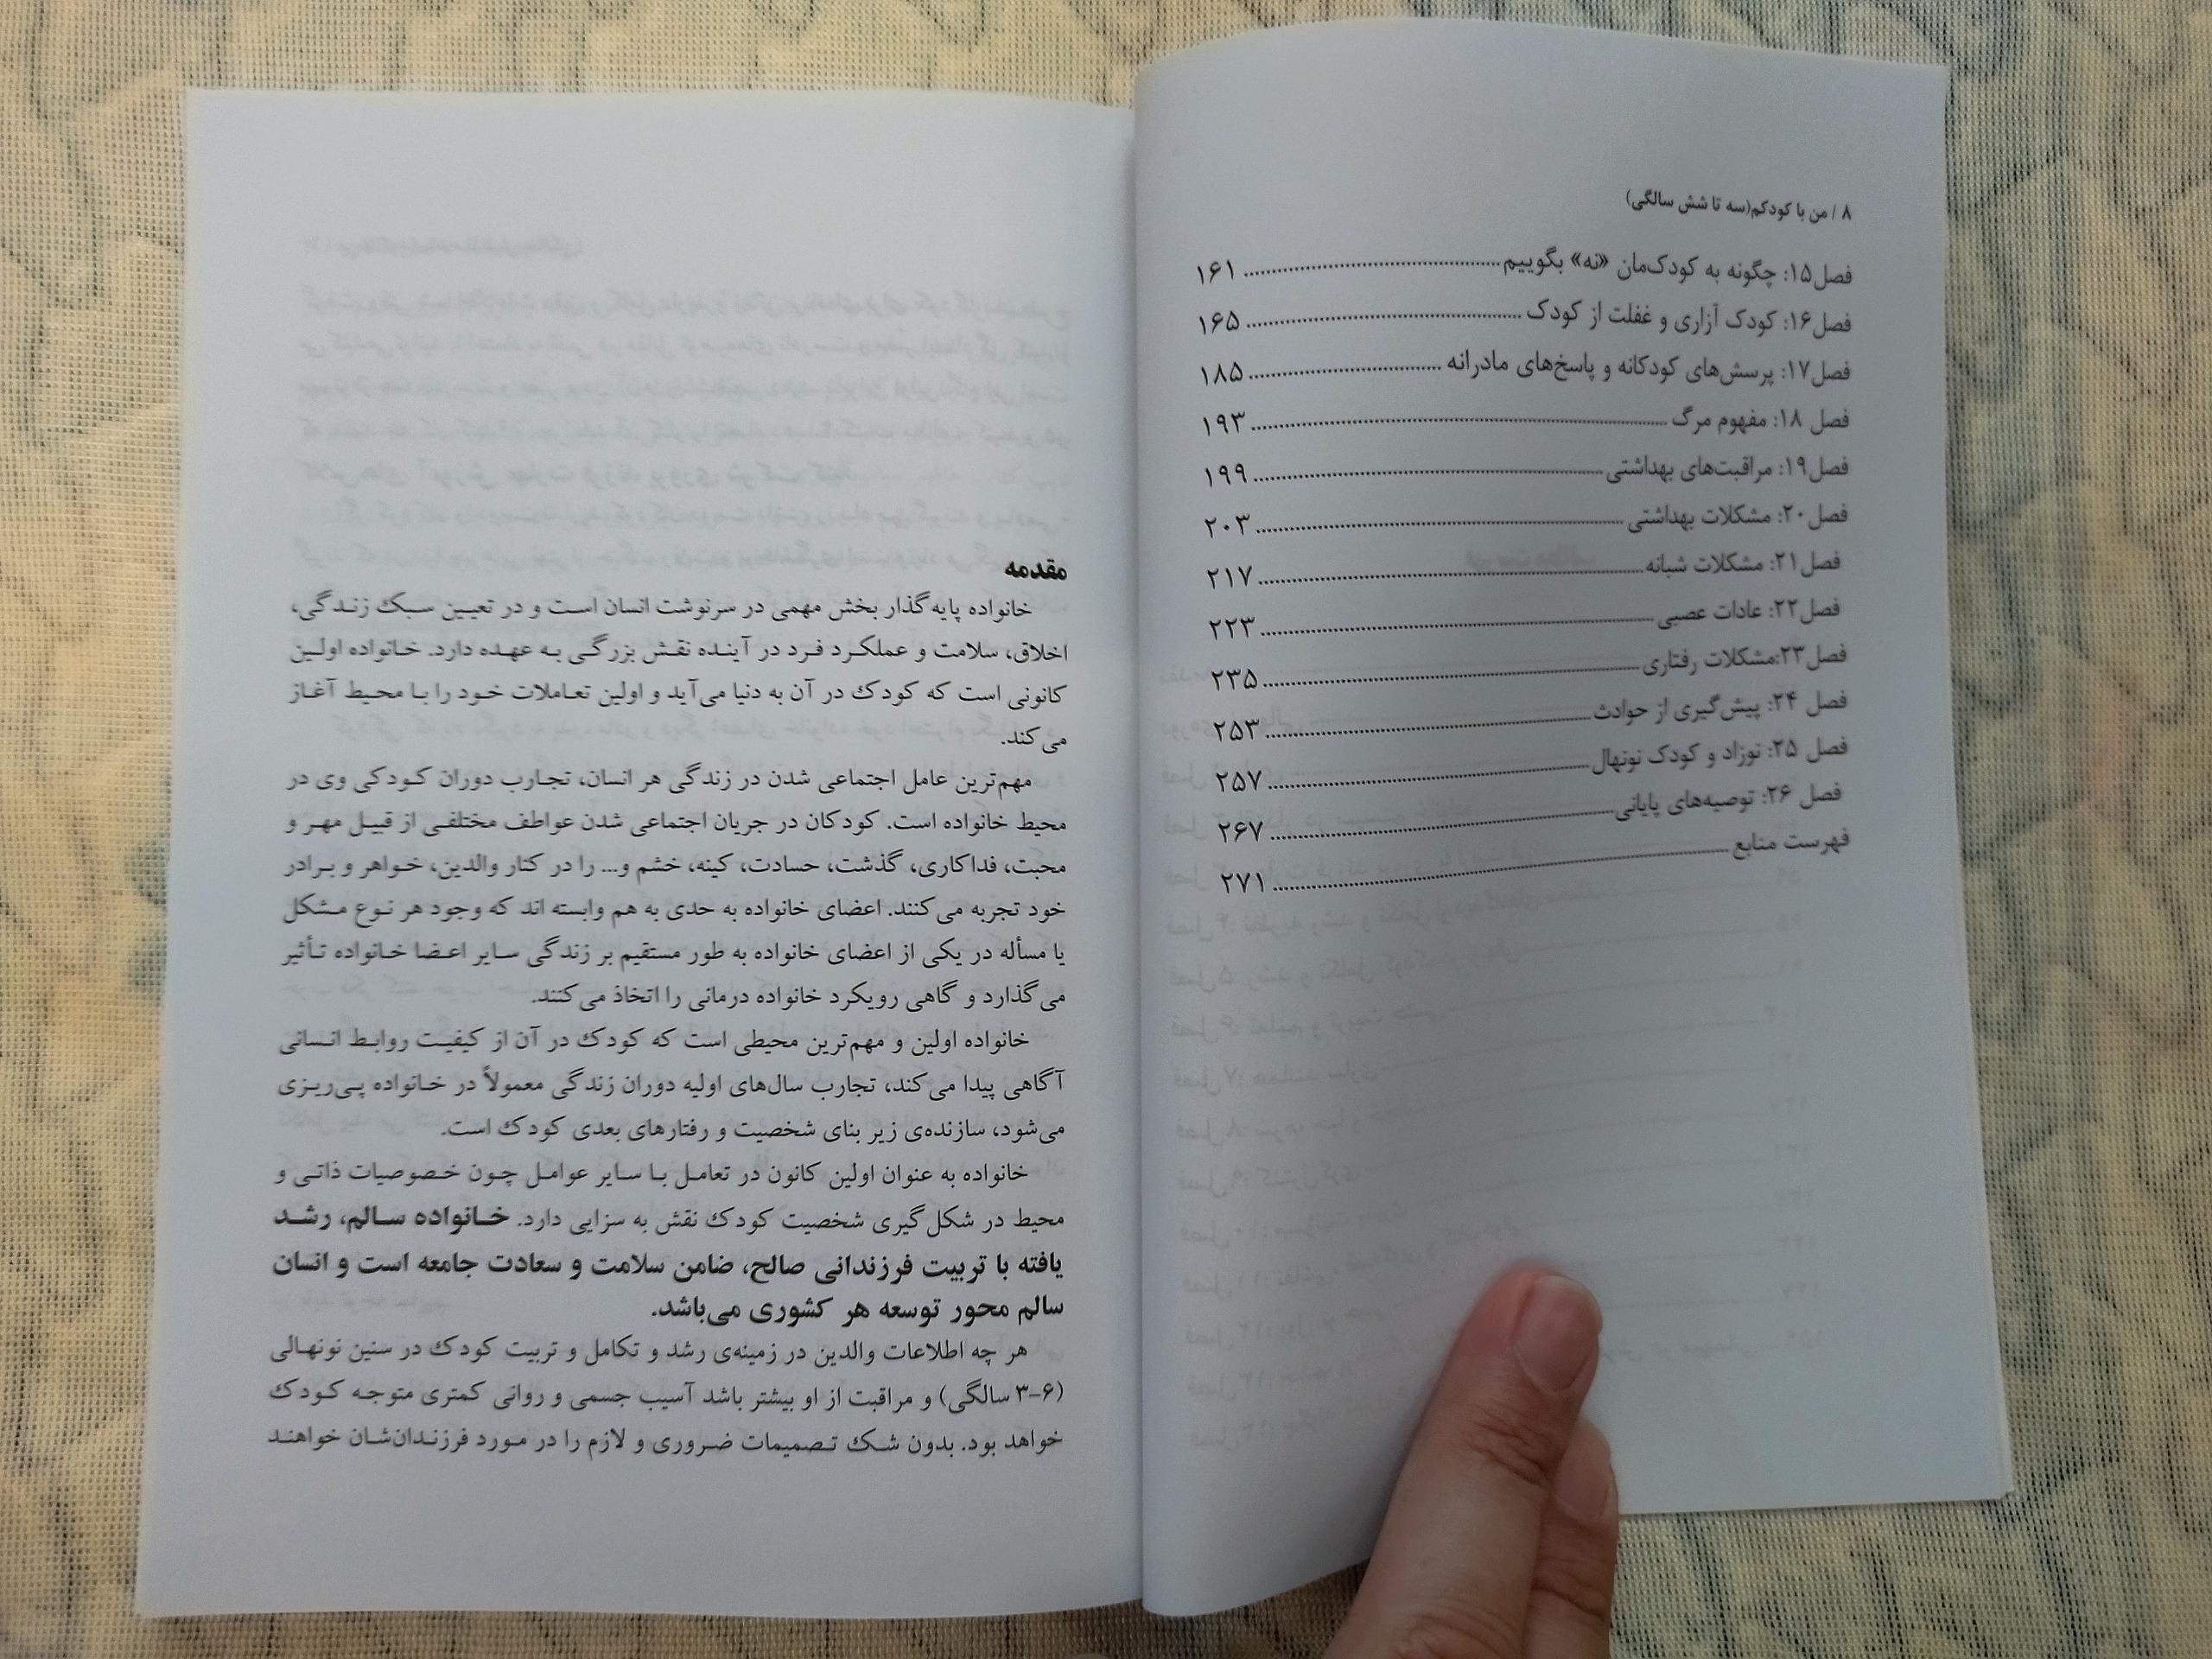 ۸ / من با کودکم(سه تا شش سالگی)
فصل۱۵: چگونه به کودک‌مان «نه» بگوییم ........ ۱۶۱
فصل۱۶: کودک آزاری و غفلت از کودک ........ ۱۶۵
فصل۱۷: پرسش‌های کودکانه و پاسخ‌های مادرانه ........ ۱۸۵
فصل ۱۸: مفهوم مرگ ........ ۱۹۳
فصل۱۹: مراقبت‌های بهداشتی ........ ۱۹۹
فصل۲۰: مشکلات بهداشتی ........ ۲۰۳
فصل۲۱: مشکلات شبانه ........ ۲۱۷
فصل۲۲: عادات عصبی ........ ۲۲۳
فصل۲۳:مشکلات رفتاری ........ ۲۳۵
فصل ۲۴: پیش‌گیری از حوادث ........ ۲۵۳
فصل ۲۵: نوزاد و کودک نونهال ........ ۲۵۷
فصل ۲۶: توصیه‌های پایانی ........ ۲۶۷
فهرست منابع ........ ۲۷۱
مقدمه
خانواده پایه گذار بخش مهمی در سرنوشت انسان است و در تعیین سبک زندگی،
اخلاق، سلامت و عملکرد فرد در آینده نقش بزرگی به عهده دارد. خانواده اولین
کانونی است که کودک در آن به دنیا می‌آید و اولین تعاملات خود را با محیط آغاز
می‌کند.
مهم‌ترین عامل اجتماعی شدن در زندگی هر انسان، تجارب دوران کودکی وی در
محیط خانواده است. کودکان در جریان اجتماعی شدن عواطف مختلفی از قبیل مهر و
محبت، فداکاری، گذشت، حسادت، کینه، خشم و... را در کنار والدین، خواهر و برادر
خود تجربه می‌کنند. اعضای خانواده به حدی به هم وابسته اند که وجود هر نوع مشکل
یا مسأله در یکی از اعضای خانواده به طور مستقیم بر زندگی سایر اعضا خانواده تأثیر
می‌گذارد و گاهی رویکرد خانواده درمانی را اتخاذ می‌کنند.
خانواده اولین و مهم‌ترین محیطی است که کودک در آن از کیفیت روابط انسانی
آگاهی پیدا می‌کند، تجارب سال‌های اولیه دوران زندگی معمولاً در خانواده پی‌ریزی
می‌شود، سازنده‌ی زیر بنای شخصیت و رفتارهای بعدی کودک است.
خانواده به عنوان اولین کانون در تعامل با سایر عوامل چون خصوصیات ذاتی و
محیط در شکل گیری شخصیت کودک نقش به سزایی دارد. خانواده سالم، رشد
یافته با تربیت فرزندانی صالح، ضامن سلامت و سعادت جامعه است و انسان
سالم محور توسعه هر کشوری می‌باشد.
هر چه اطلاعات والدین در زمینه‌ی رشد و تکامل و تربیت کودک در سنین نونهالی
(۶-۳ سالگی) و مراقبت از او بیشتر باشد آسیب جسمی و روانی کمتری متوجه کودک
خواهد بود. بدون شک تصمیمات ضروری و لازم را در مورد فرزندان‌شان خواهند